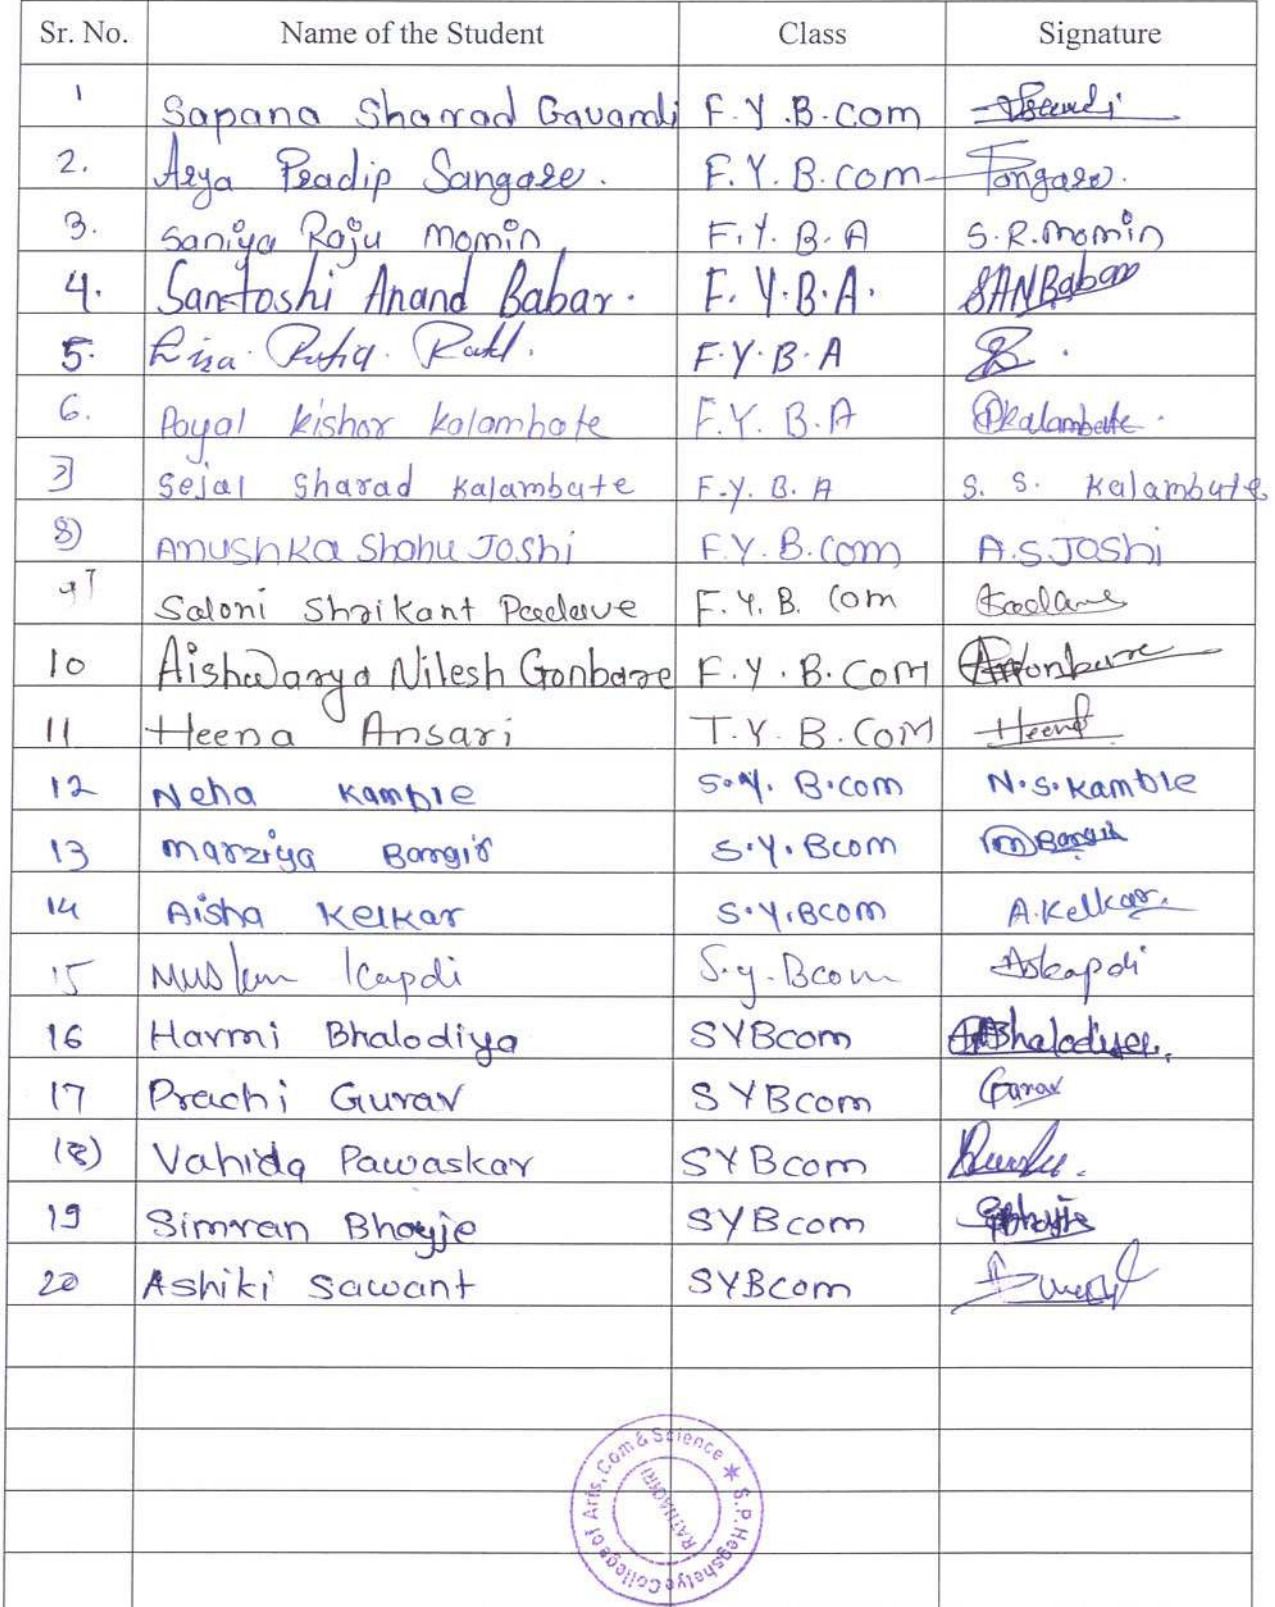 Sr. No. Name of the Student Class Signature
1 Sapana Sharad Gavandi F.Y.B.com
2. Arya Pradip Sangare. F.Y.B.com Sangare.
3. Saniya Raju Momin F.Y.B.A S.R.Momin
4. Santoshi Anand Babar. F.Y.B.A. SANBabar
5. F.Y.B.A
6. Payal kishor kalambate F.Y.B.A Pkalambate.
7] Sejal Sharad Kalambate F.Y.B.A S. S. Kalambate
8) Anushka Shahu Joshi F.Y.B.Com A.S Joshi
9] Saloni Shrikant Padave F.Y.B.Com Padave
10 Aishwarya Nilesh Gonbare F.Y.B.Com AGonbare
11 Heena Ansari T.Y.B.COM Heena
12 Neha Kamble S.Y.B.com N.S.Kamble
13 Marziya Bangi S.Y.Bcom
14 Aisha Kelkar S.Y.BCom A.Kelkar.
15 Muskan Kapdi S.y.Bcom Askapdi
16 Harmi Bhalodiya SYBcom Bhalodiya.
17 Prachi Gurav SYBcom Gurav
18) Vahida Pawaskar SYBcom
19 Simran Bhoyje SYBcom
20 Ashiki Sawant SYBcom
S.P. Hegshetye College of Arts, Com & Science *
RATNAGIRI